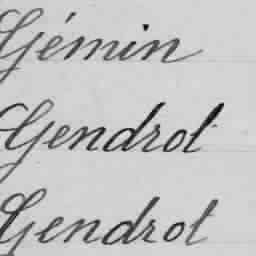 Gémin
Gendrot
Gendrot